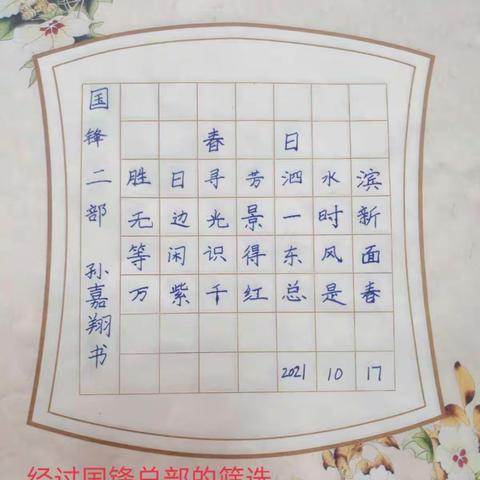 国锋二部 孙嘉翔书
春日
胜日寻芳泗水滨
无边光景一时新
等闲识得东风面
万紫千红总是春
2021 10 17
经过国锋总部的筛选